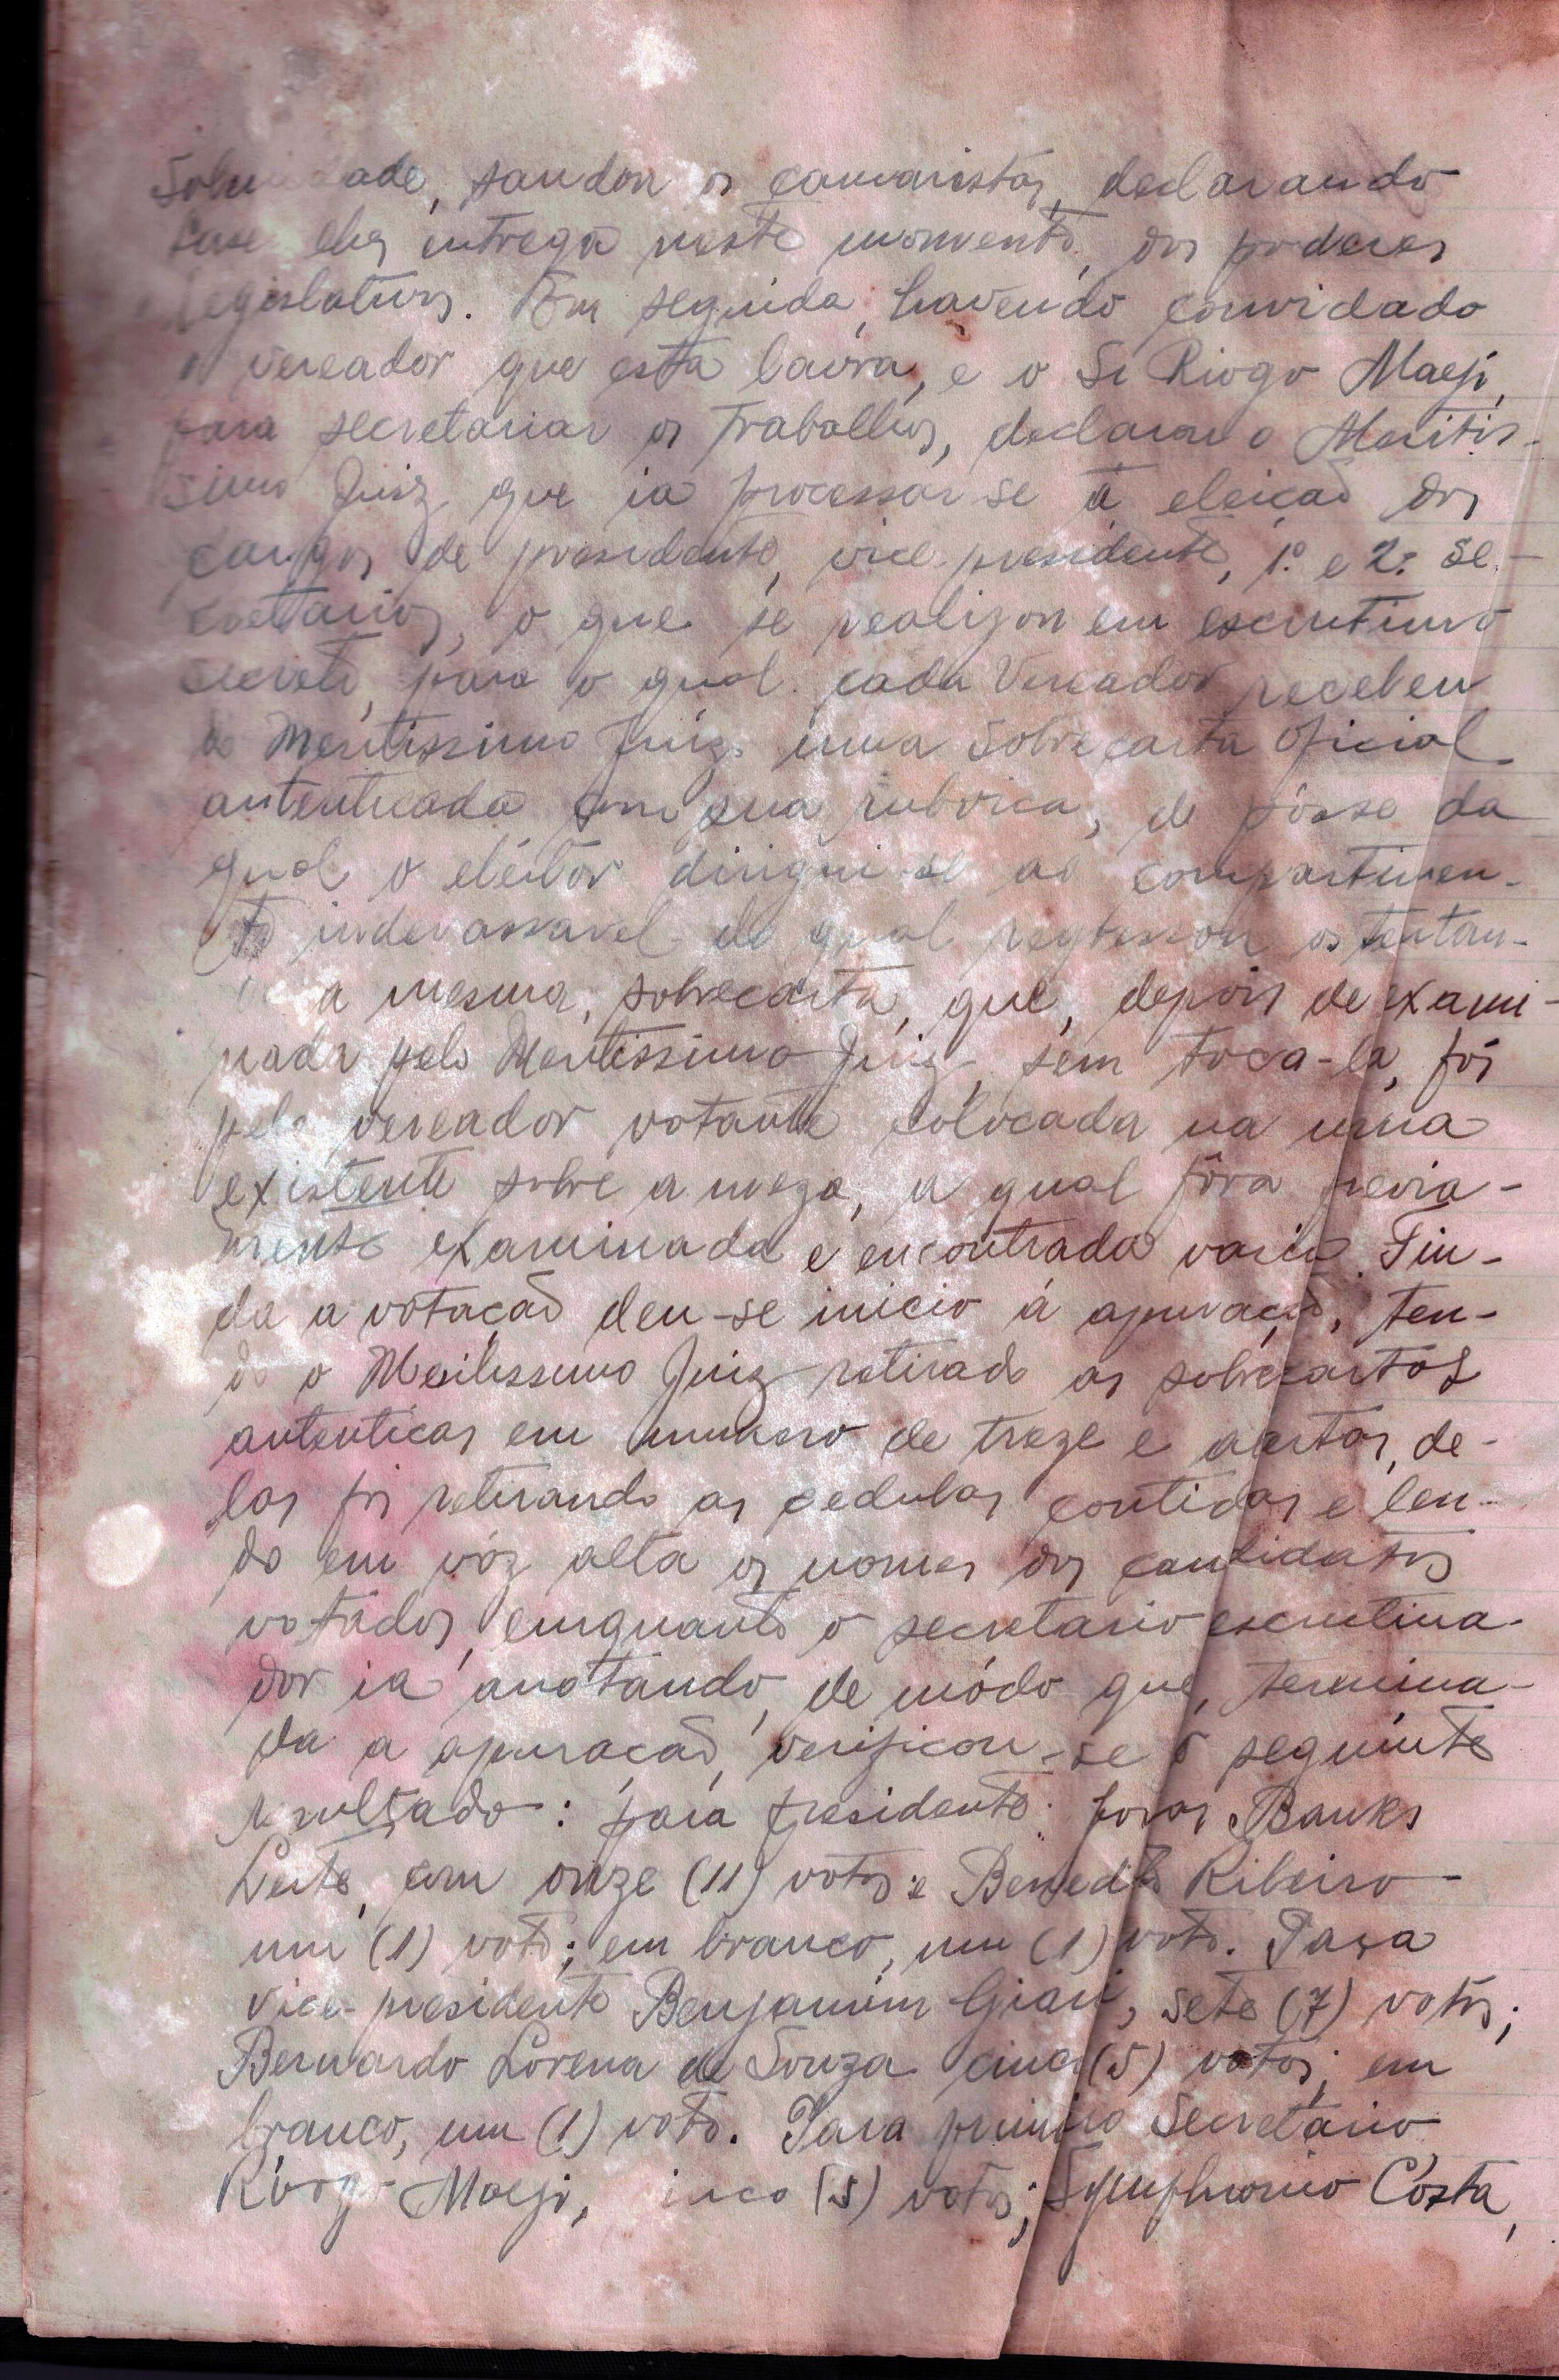 saudou os camaristas, declarando
eles entrega neste momento, dos poderes
legislativos. Em seguida, havendo convidado
o vereador que esta lavra, e o Sr Riogo Maeji,
para secretariar os trabalhos, declarou o Meritis-
simo Juiz que ia processar-se á eleição dos
cargos de presidente, vice-presidente, 1º e 2º se-
cretarios, o que se realizou em escrutinio
secreto, para o qual cada Vereador recebeu
do Meritissimo Juiz uma sobrecarta oficial
autenticada com sua rubrica, de pósse da
qual o eleitor dirigui-se ao compartimen-
to indevassavel do qual regressou ostentan-
a mesma sobrecarta, que, depois de exami-
nada pelo Meritissimo Juiz, sem toca-la, foi
pelo vereador votante colocada na urna
existente sobre a meza, a qual fôra previa-
mente examinada e encontrada vasia. Fin-
da a votação deu-se inicio á apuração, ten-
do o Meritissimo Juiz retirado as sobrecartas
autenticas em numero de treze e abertas, de-
las foi retirando as cedulas contidas e len-
do em vóz alta os nomes dos candidatos
votados, emquanto o secretario escrutina-
dor ia anotando, de módo que, termina-
da a apuração, verificou-se o seguinte
resultado: para presidente: Banks
Leite, com onze (11) votos e Benedito Ribeiro
um (1) voto; em branco, um (1) voto. Para
vice-presidente Benjamim Giani, sete (7) votos;
Bernardo Lorena de Souza cinco (5) votos; em
branco, um (1) voto. Para primeiro Secretario
Riogo Maeji, cinco (5) votos; Symphronio Costa,